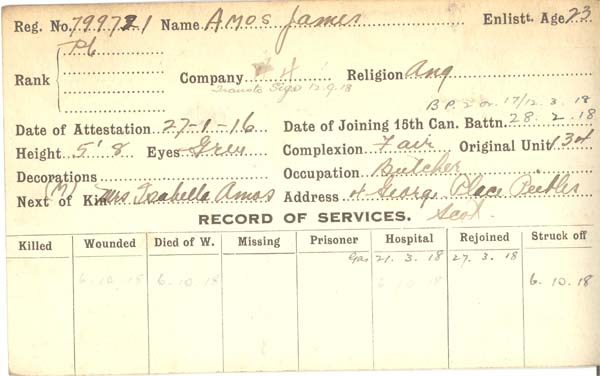 Reg. No. 799721 Name Amos James Enlistt. Age 23
Pt
Rank Company 4 Religion Ang
Transfd Sigs 12.9.18
B.P. 2 or. 17/12. 3. 18
Date of Attestation 27-1-16 Date of Joining 15th Can. Battn. 28. 2. 18
Height 5' 8 Eyes Grey Complexion Fair Original Unit 134
Decorations Occupation Butcher
Next of Kin (M) Mrs Isabella Amos Address 4 George Place Peebles
Scot.
RECORD OF SERVICES.
Killed Wounded Died of W. Missing Prisoner Hospital Rejoined Struck off
Gas 21. 3. 18 27. 3. 18
6. 10. 18 6. 10. 18 6 10 18 6. 10. 18